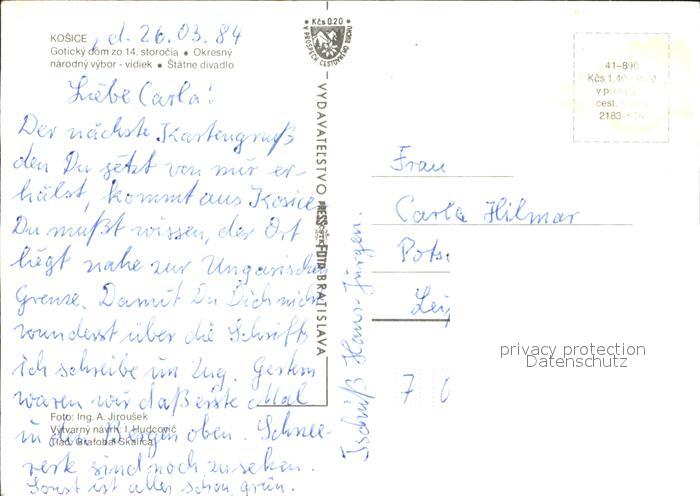 KOŠICE, d. 26.03.84
Gotický dom zo 14. storočia • Okresný
národný výbor - vidiek • Štátne divadlo
Liebe Carla!
Der nächste Kartengruß
den Du jetzt von mir er-
hälst, kommt aus Kosice.
Du mußt wissen, der Ort
liegt nahe zur Ungarischen
Grenze. Damit Du Dich nicht
wunderst über die Schrift
ich schreibe im Zug. Gestern
waren wir daß erste Mal
in den Bergen oben. Schnee-
reste sind noch zu sehen.
Sonst ist alles schon grün.
Foto: Ing. A. Jiroušek
Výtvarný návrh: I. Hudcovič
Tlač: Grafobal Skalica
Tschüß Hans-Jürgen.
Kčs 0.20
V PROSPECH CESTOVNÉHO RUCHU
VYDAVATEĽSTVO PRESSFOTO BRATISLAVA
41-890
Kčs 1,40
cest.
2183
Frau
Carla Hilmar
Pots
Leip
7 0
privacy protection
Datenschutz